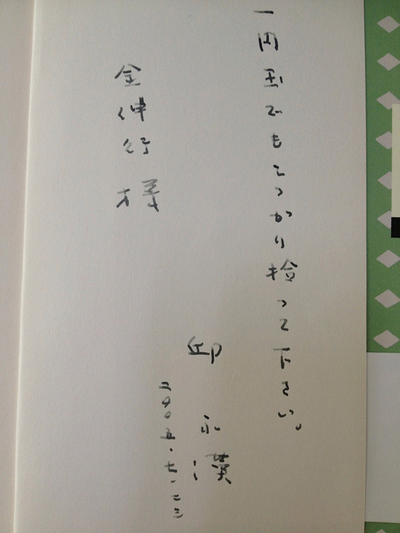 一円玉でもしっかり拾って下さい。
金伸行様
邱永漢
二〇〇五・七・二三